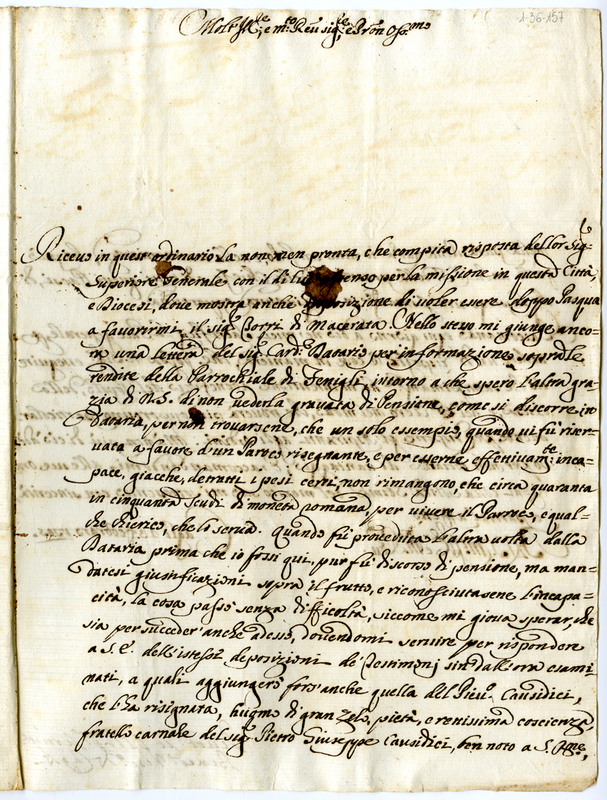 1-36-157
Molt Ill:re, e m:to Reu sig:re, e Pron Oss:mo
Riceuo in quest'ordinario la non men pronta, che compita risposta dellor Sig:
Superiore Generale con il di lui per la missione in questa Città,
e Diocesi, doue mostra anche disposizione di uoler essere doppo Pasqua
a fauorirmi il sig: Porri di Macerata. Nello stesso mi giunge anco=
ra una lettera del sig: Card: Datario per informazione sopra le
rendite della Parrochiale di Fenigli, intorno a che spero l'altra gra=
zia di N.S. di non uederla grauata di Pensione, come si discorre in
Dataria, per non trouarsene, che un solo essempio, quando ui fù riser=
uata a fauore d'un Paroco risegnante, e per esserne effettiuam:te inca=
pace, giacche, detratti i pesi certi, non rimangono, che circa quaranta
in cinquanta scudi di moneta romana, per uiuere il Parroco, e qual=
che chierico, che lo serua. Quando fù proueduta l'altra uolta dalla
Dataria prima che io fossi qui, pur fù discorso di pensione, ma man=
datesi giustificazioni sopra il frutto, e riconosciutasene l'incapa=
cità, la cosa passò senza difficoltà, siccome mi gioua sperar, che
sia per succeder anche adesso, douendomi seruire per rispondere
a S.E. dell'istesse deposizioni de' Testimonj sin dall'ora esami
nati, a quali aggiungerò fors'anche quella del Causidici,
che l'ha risignata, huomo di gran zelo, pietà, e coscienza,
fratello carnale del sig: Pietro Giuseppe Causidici, ben noto a S.